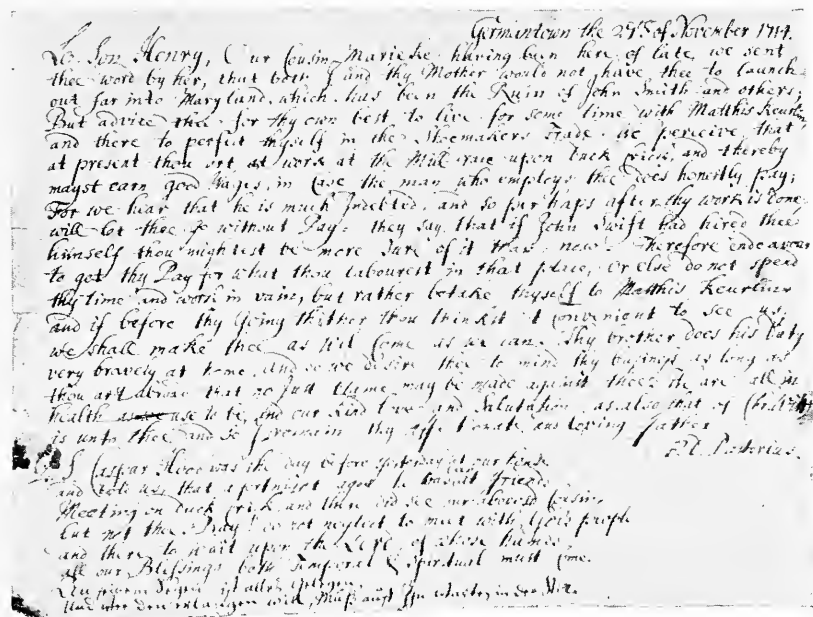 Germantown the 21st of November 1714.
Lo. Son Henry, Our Cousin Marieke having been here of late, we sent
thee word by her, that both I and thy Mother would not have thee to launch
out far into Maryland, which has been the Ruin of John Smith and others;
But advise thee for thy own best to live for some time with Matthis
and there to perfect thyself in the Shoemakers Trade. We perceive that
at present thou art at work at the Mill-race upon Duck Crick, and thereby
mayst earn good Wages, in Case the man who employs thee does honestly pay;
For we hear that he is much Indebted, and so perhaps after thy work is done,
will let thee go without Pay. they say, that if John Swift had hired thee
himself thou mightest be more sure of it than now. Therefore endeavour
to get thy Pay for what thou labourest in that place, or else do not spend
thy time and work in vain, but rather betake thyself to Matthis Keurlins
and if before thy Going thither thou thinkst it convenient to see us,
we shall make thee as wel come as we can. Thy brother does his Duty
very bravely at home, and so we desire thee to mind thy business as long as
thou art abroad that no just blame may be made against thee. We are all in
health as we use to be, and our kind Love and Salutation, as also that of
is unto thee and so I remain thy affectionate and loving father
F.D. Pastorius.
PS Caspar Hood was the day before yesterday at our house
and told us, that a fortnight agoe he was at friends
Meeting on Duck Crick, and there did see our abovesd Cousin,
but not thee. Pray! do not neglect to meet with God's people
and there to wait upon the Lord, of whose hands
all our Blessings both temporal & Spiritual must come.
An seinem Segen ist alles gelegen,
Und wer den erlangen will, Muß auf Ihn warten in der Still.